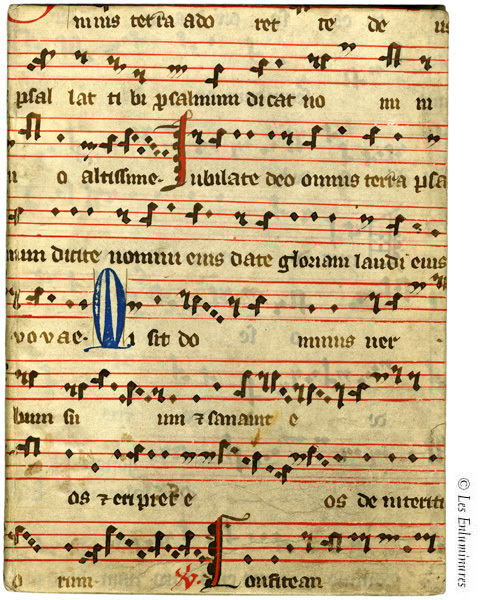 mnis terra ado ret te de us
psal lat ti bi psalmum dicat no mi ni
o altissime. Iubilate deo omnis terra psa
mum dicite nomini eius date gloriam laudi eius
vovae. Misit do minus ver
bum su um ⁊ sanavit e
os ⁊ e os de interiti
o rum. V. Confitean
© Les Enluminures